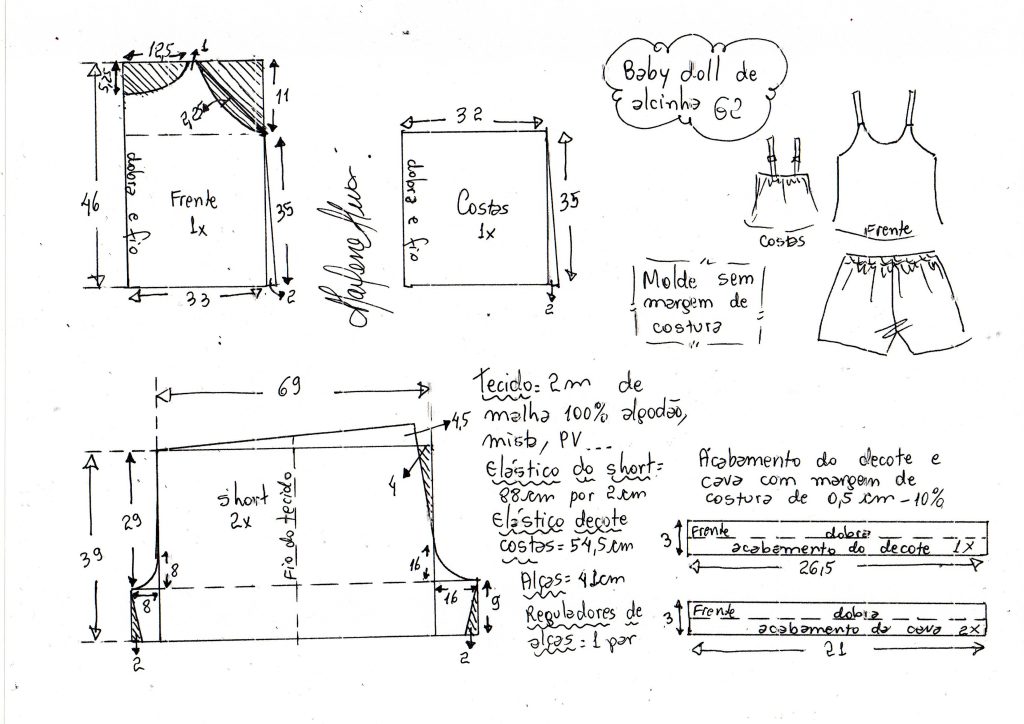 12,5
1
5,25
2,2
11
46
dobra e fio
Frente
1x
35
33
2
32
dobra e fio
Costas
1x
35
2
Baby doll de
alcinha G2
Costas
Frente
Molde sem
margem de
costura
69
4,5
4
39
29
short
2x
Fio do tecido
8
8
16
16
9
2
2
Tecido= 2m de
malha 100% algodão,
mista, PV ....
Elástico do short=
88cm por 2cm
Elástico decote
costas= 54,5cm
Alças= 41cm
Reguladores de
alças= 1 par
Acabamento do decote e
cava com margem de
costura de 0,5 cm -10%
3
Frente dobra
acabamento do decote 1x
26,5
3
Frente dobra
acabamento da cava 2x
21